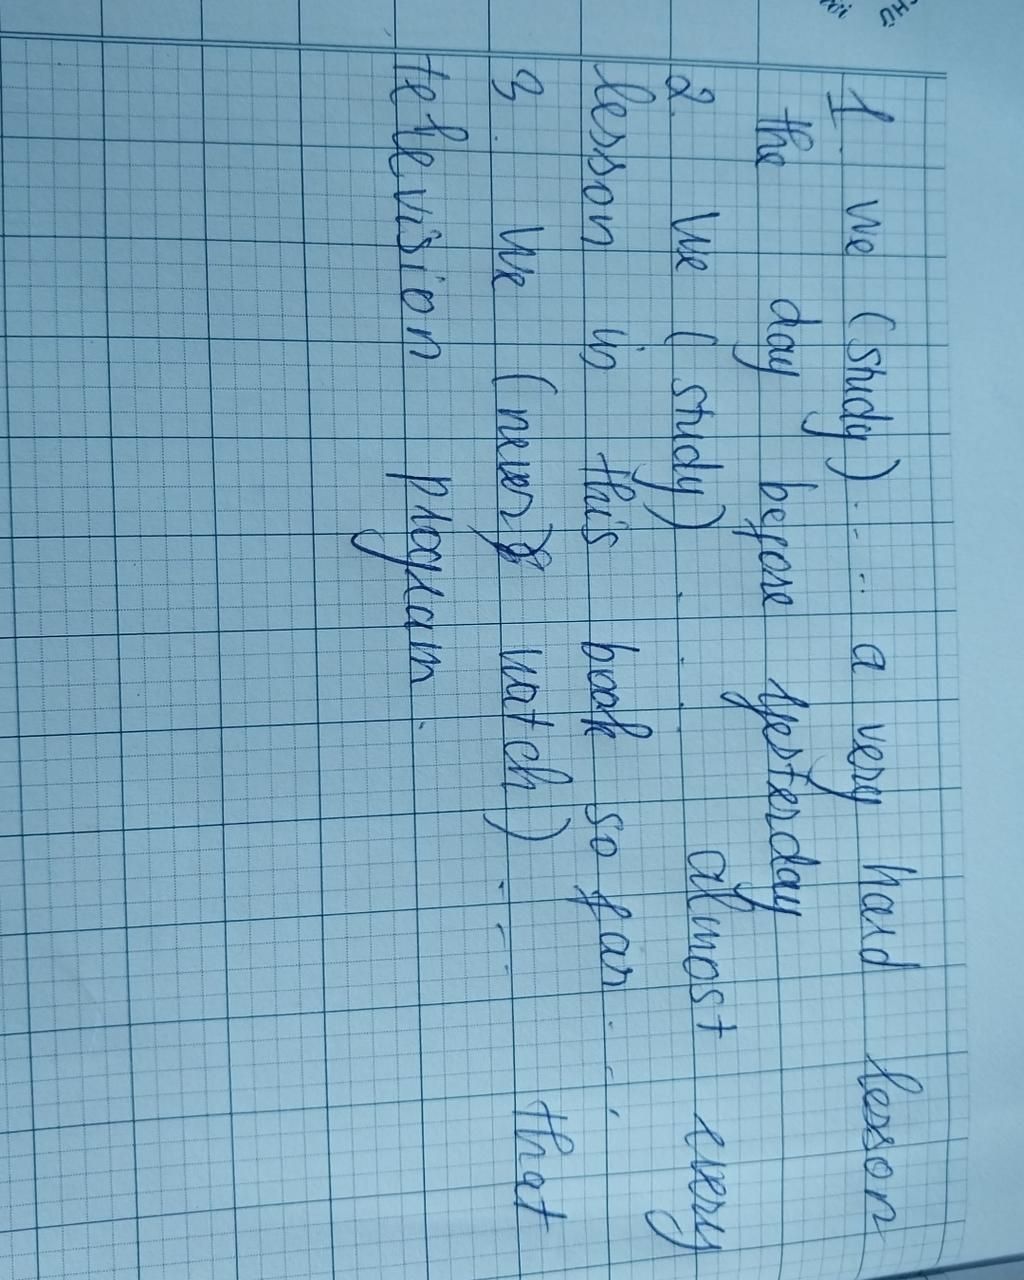 1. We (study) ..... a very hard lesson
the day before yesterday
2. We (study) . . . almost every
lesson in this book so far . . .
3. We (never watch) . . . that
television program.